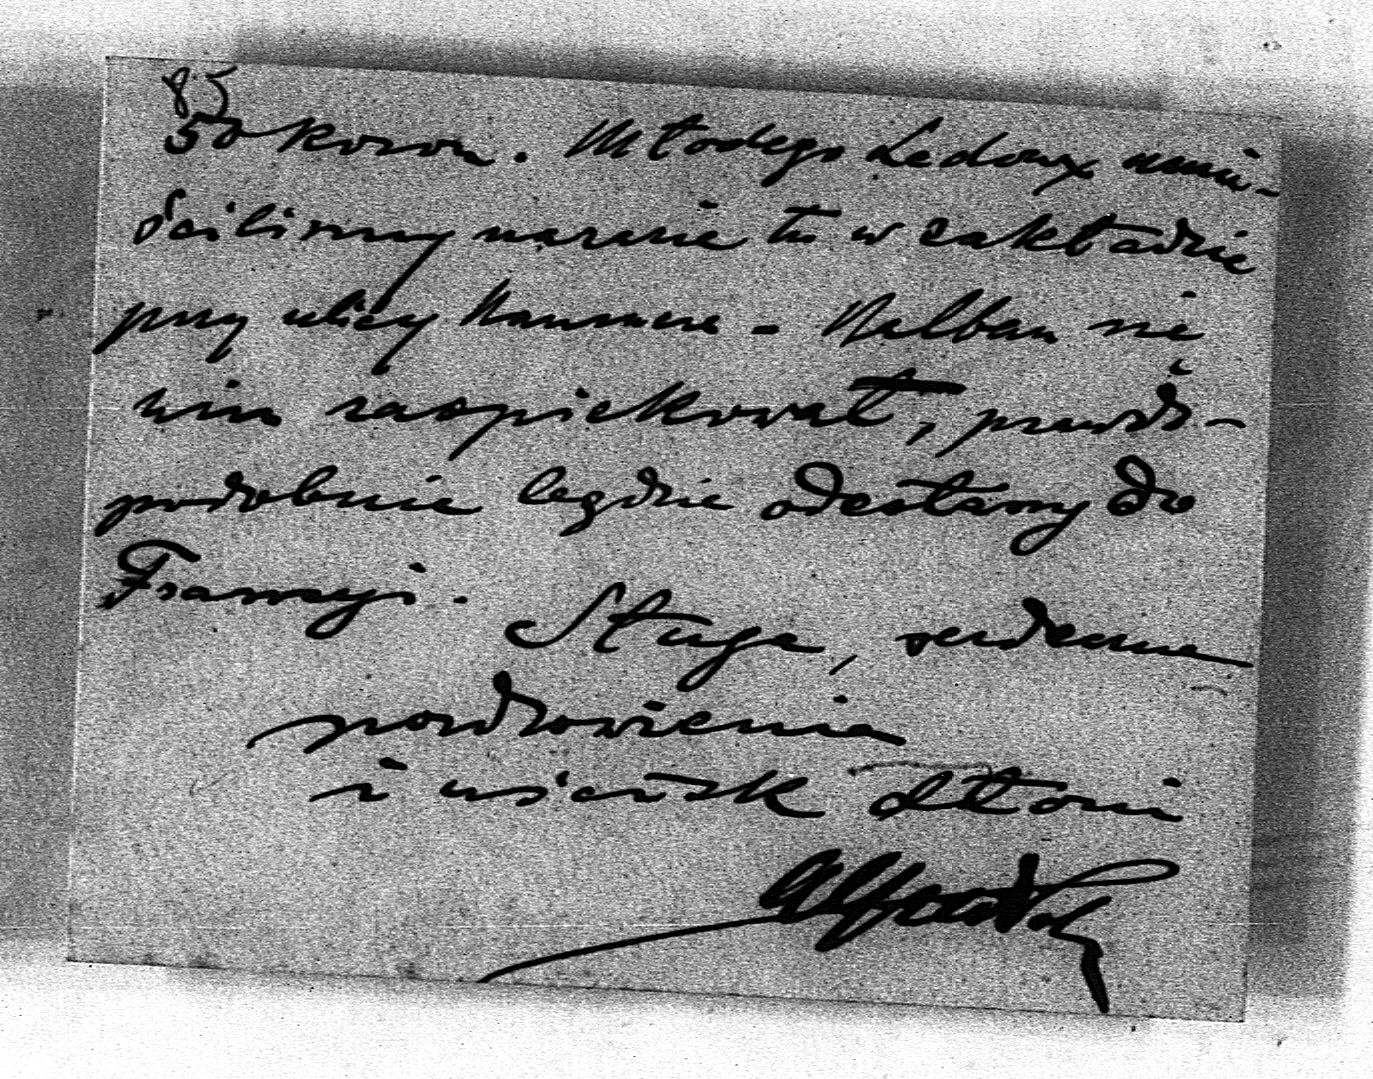 85
50 koron. Młodego Ledoux umie-
ściliśmy narazie tu w zakładzie
przy ulicy - Nalban nie
wiem zaopiekował, prawdo-
podobnie będzie odesłany do
Francyi.
Sługa, serdeczne
pozdrowienia
i uścisk dłoni
Alfred